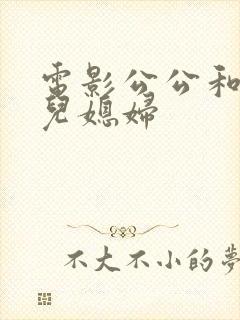 電影公公和
兒媳婦
不大不小的夢